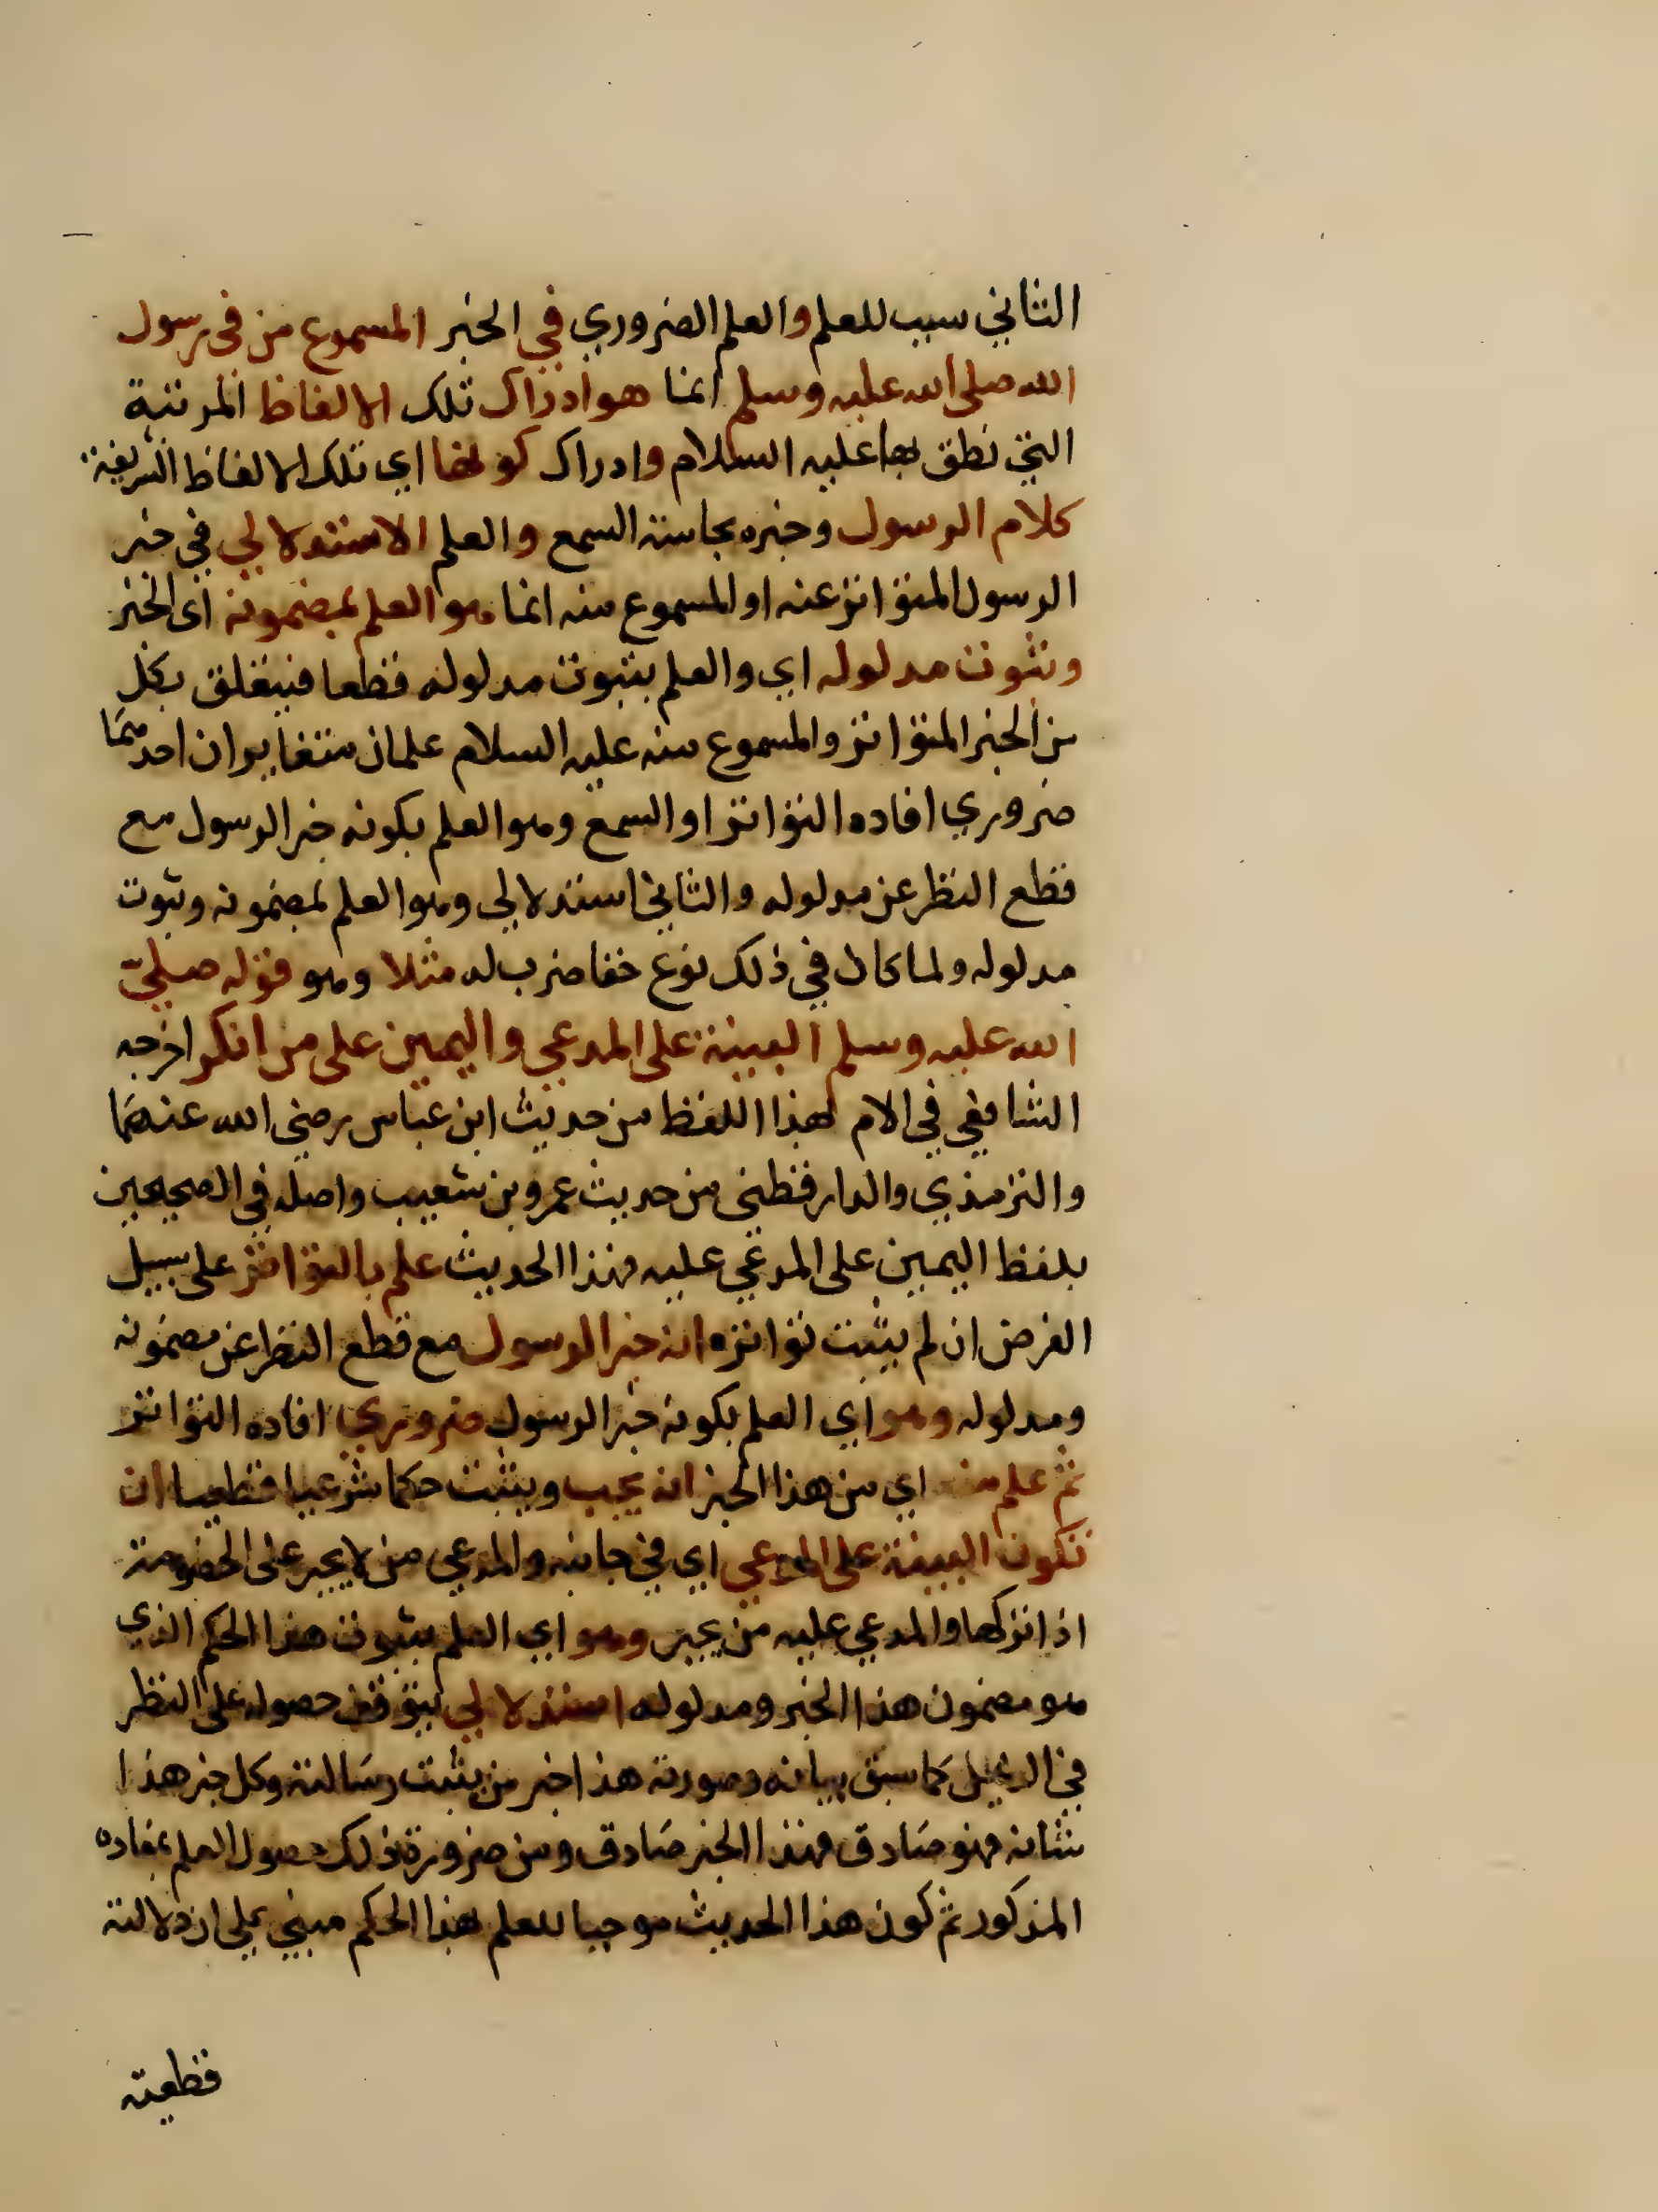 الثاني سبب للعلم والعلم الضروري في الخبر المسموع من في رسول
الله صلى الله عليه وسلم انما هو ادراك تلك الالفاظ المرتبة
التي نطق بها عليه السلام وادراك كونها اي تلك الالفاظ الشريفة
كلام الرسول وخبره بحاسة السمع والعلم الاستدلالي في خبر
الرسول المتواتر عنه او المسموع منه انما هو العلم بمضمونه اى الخبر
وثبوت مدلوله اي والعلم بثبوت مدلوله قطعا فيتعلق بكل
من الخبر المتواتر والمسموع منه عليه السلام علمان متغايران احدهما
ضروري افاده التواتر او السمع وهو العلم بكونه خبر الرسول مع
قطع النظر عن مدلوله والثاني استدلالي وهو العلم بمضمونه وثبوت
مدلوله ولما كان في ذلك نوع خفا ضرب له مثلا وهو قوله صلى
الله عليه وسلم البينة على المدعي واليمين على من انكر اخرجه
الشافعي في الام بهذا اللفظ من حديث ابن عباس رضي الله عنهما
والترمذي والدارقطني من حديث عمرو بن شعيب واصله في الصحيحين
بلفظ اليمين على المدعي عليه فهذا الحديث علم بالتواتر على سبيل
الفرض ان لم يثبت تواتره انه خبر الرسول مع قطع النظر عن مضمونه
ومدلوله وهو اي العلم بكونه خبر الرسول ضروري افاده التواتر
ثم علم منه اي من هذا الخبر انه يجب ويثبت حكما شرعيا قطعيا ان
تكون البينة على المدعي اي في جانبه والمدعي من لا يجبر على الخصومة
اذا تركها والمدعي عليه من يجبر وهو اي العلم بثبوت هذا الحكم الذي
هو مضمون هذا الخبر ومدلوله استدلالي يتوقف حصوله على النظر
في الدليل كما سبق بيانه وصورته هذا خبر من يثبت رسالته وكل خبر هذا
شانه فهو صادق فهذا الخبر صادق ومن ضرورة ذلك حصول العلم بمفاده
المذكور ثم كون هذا الحديث موجبا للعلم بهذا الحكم مبني على ان دلالته
قطعية